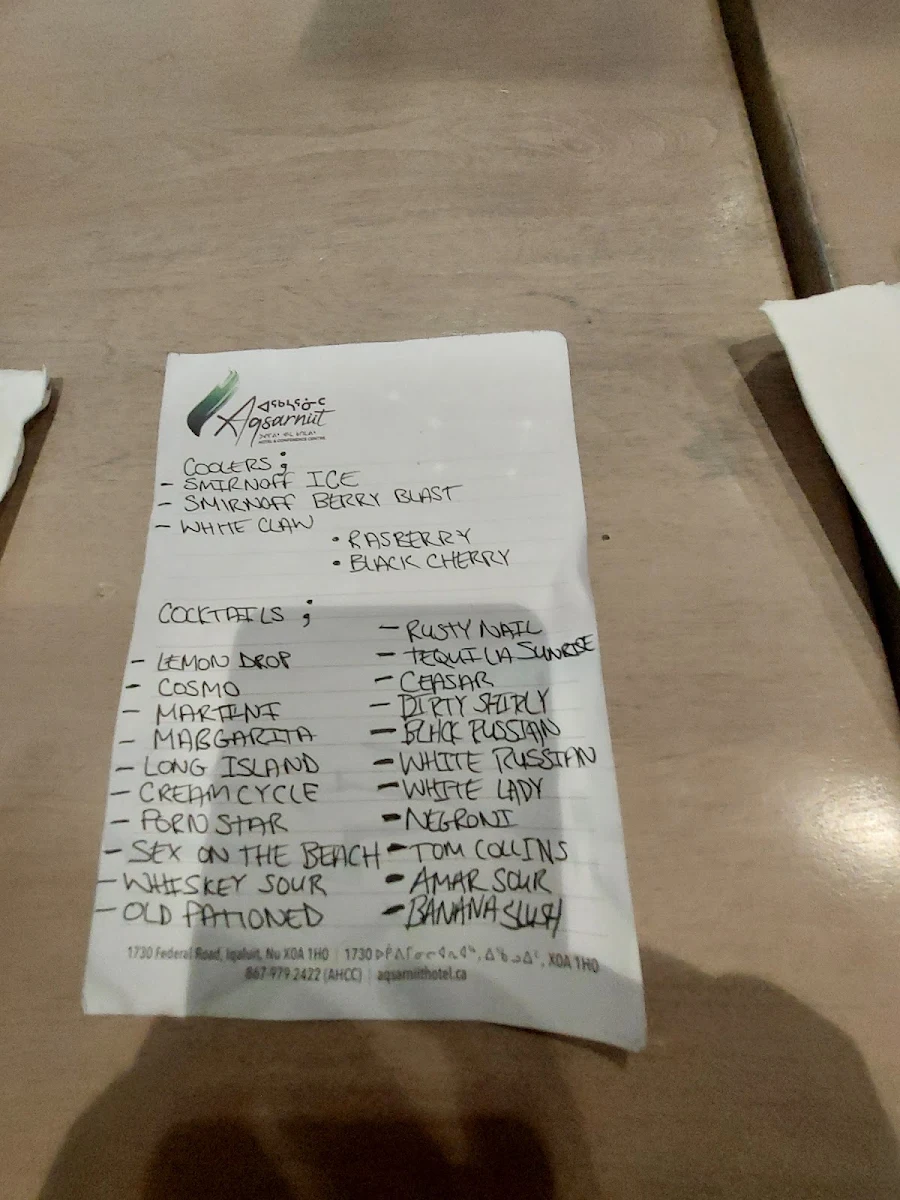 ᐊᖅᓴᕐᓃᑦ
Aqsarniit
HOTEL & CONFERENCE CENTRE
COOLERS;
- SMIRNOFF ICE
- SMIRNOFF BERRY BLAST
- WHITE CLAW
• RASBERRY
• BLACK CHERRY
COCKTAILS;
- LEMON DROP
- COSMO
- MARTINI
- MARGARITA
- LONG ISLAND
- CREAMCYCLE
- PORN STAR
- SEX ON THE BEACH
- WHISKEY SOUR
- OLD FATIONED
- RUSTY NAIL
- TEQUILA SUNRISE
- CEASAR
- DIRTY SHIRLY
- BLACK RUSSIAN
- WHITE RUSSIAN
- WHITE LADY
- NEGRONI
- TOM COLLINS
- AMAR SOUR
- BANANA SLUSH
1730 Federal Road, Iqaluit, Nu X0A 1H0 | 1730 ᐃᖃᓗᐃᑦ, X0A 1H0
867-979-2422 (AHCC) | aqsarniithotel.ca